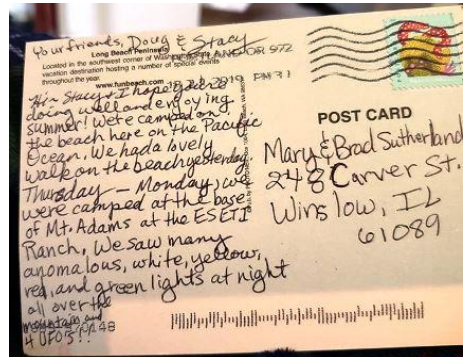 Your friends, Doug & Stacy
Long Beach Peninsula
Located in the southwest corner of
vacation destination hosting a number of special events
throughout the year.
www.funbeach.com
PORTLAND OR 972
PM 3 1
Stacy & I hope you're
doing well and enjoying
summer! We're camped on
the beach here on the Pacific
Ocean. We had a lovely
walk on the beach yesterday.
Thursday - Monday, we
were camped at the base
of Mt. Adams at the ESETI
Ranch. We saw many
anomalous, white, yellow,
red, and green lights at night
all over the
mountain and
4 UFO's!!
0148
POST CARD
Mary & Brad Sutherland
248 Carver St.
Winslow, IL
61089